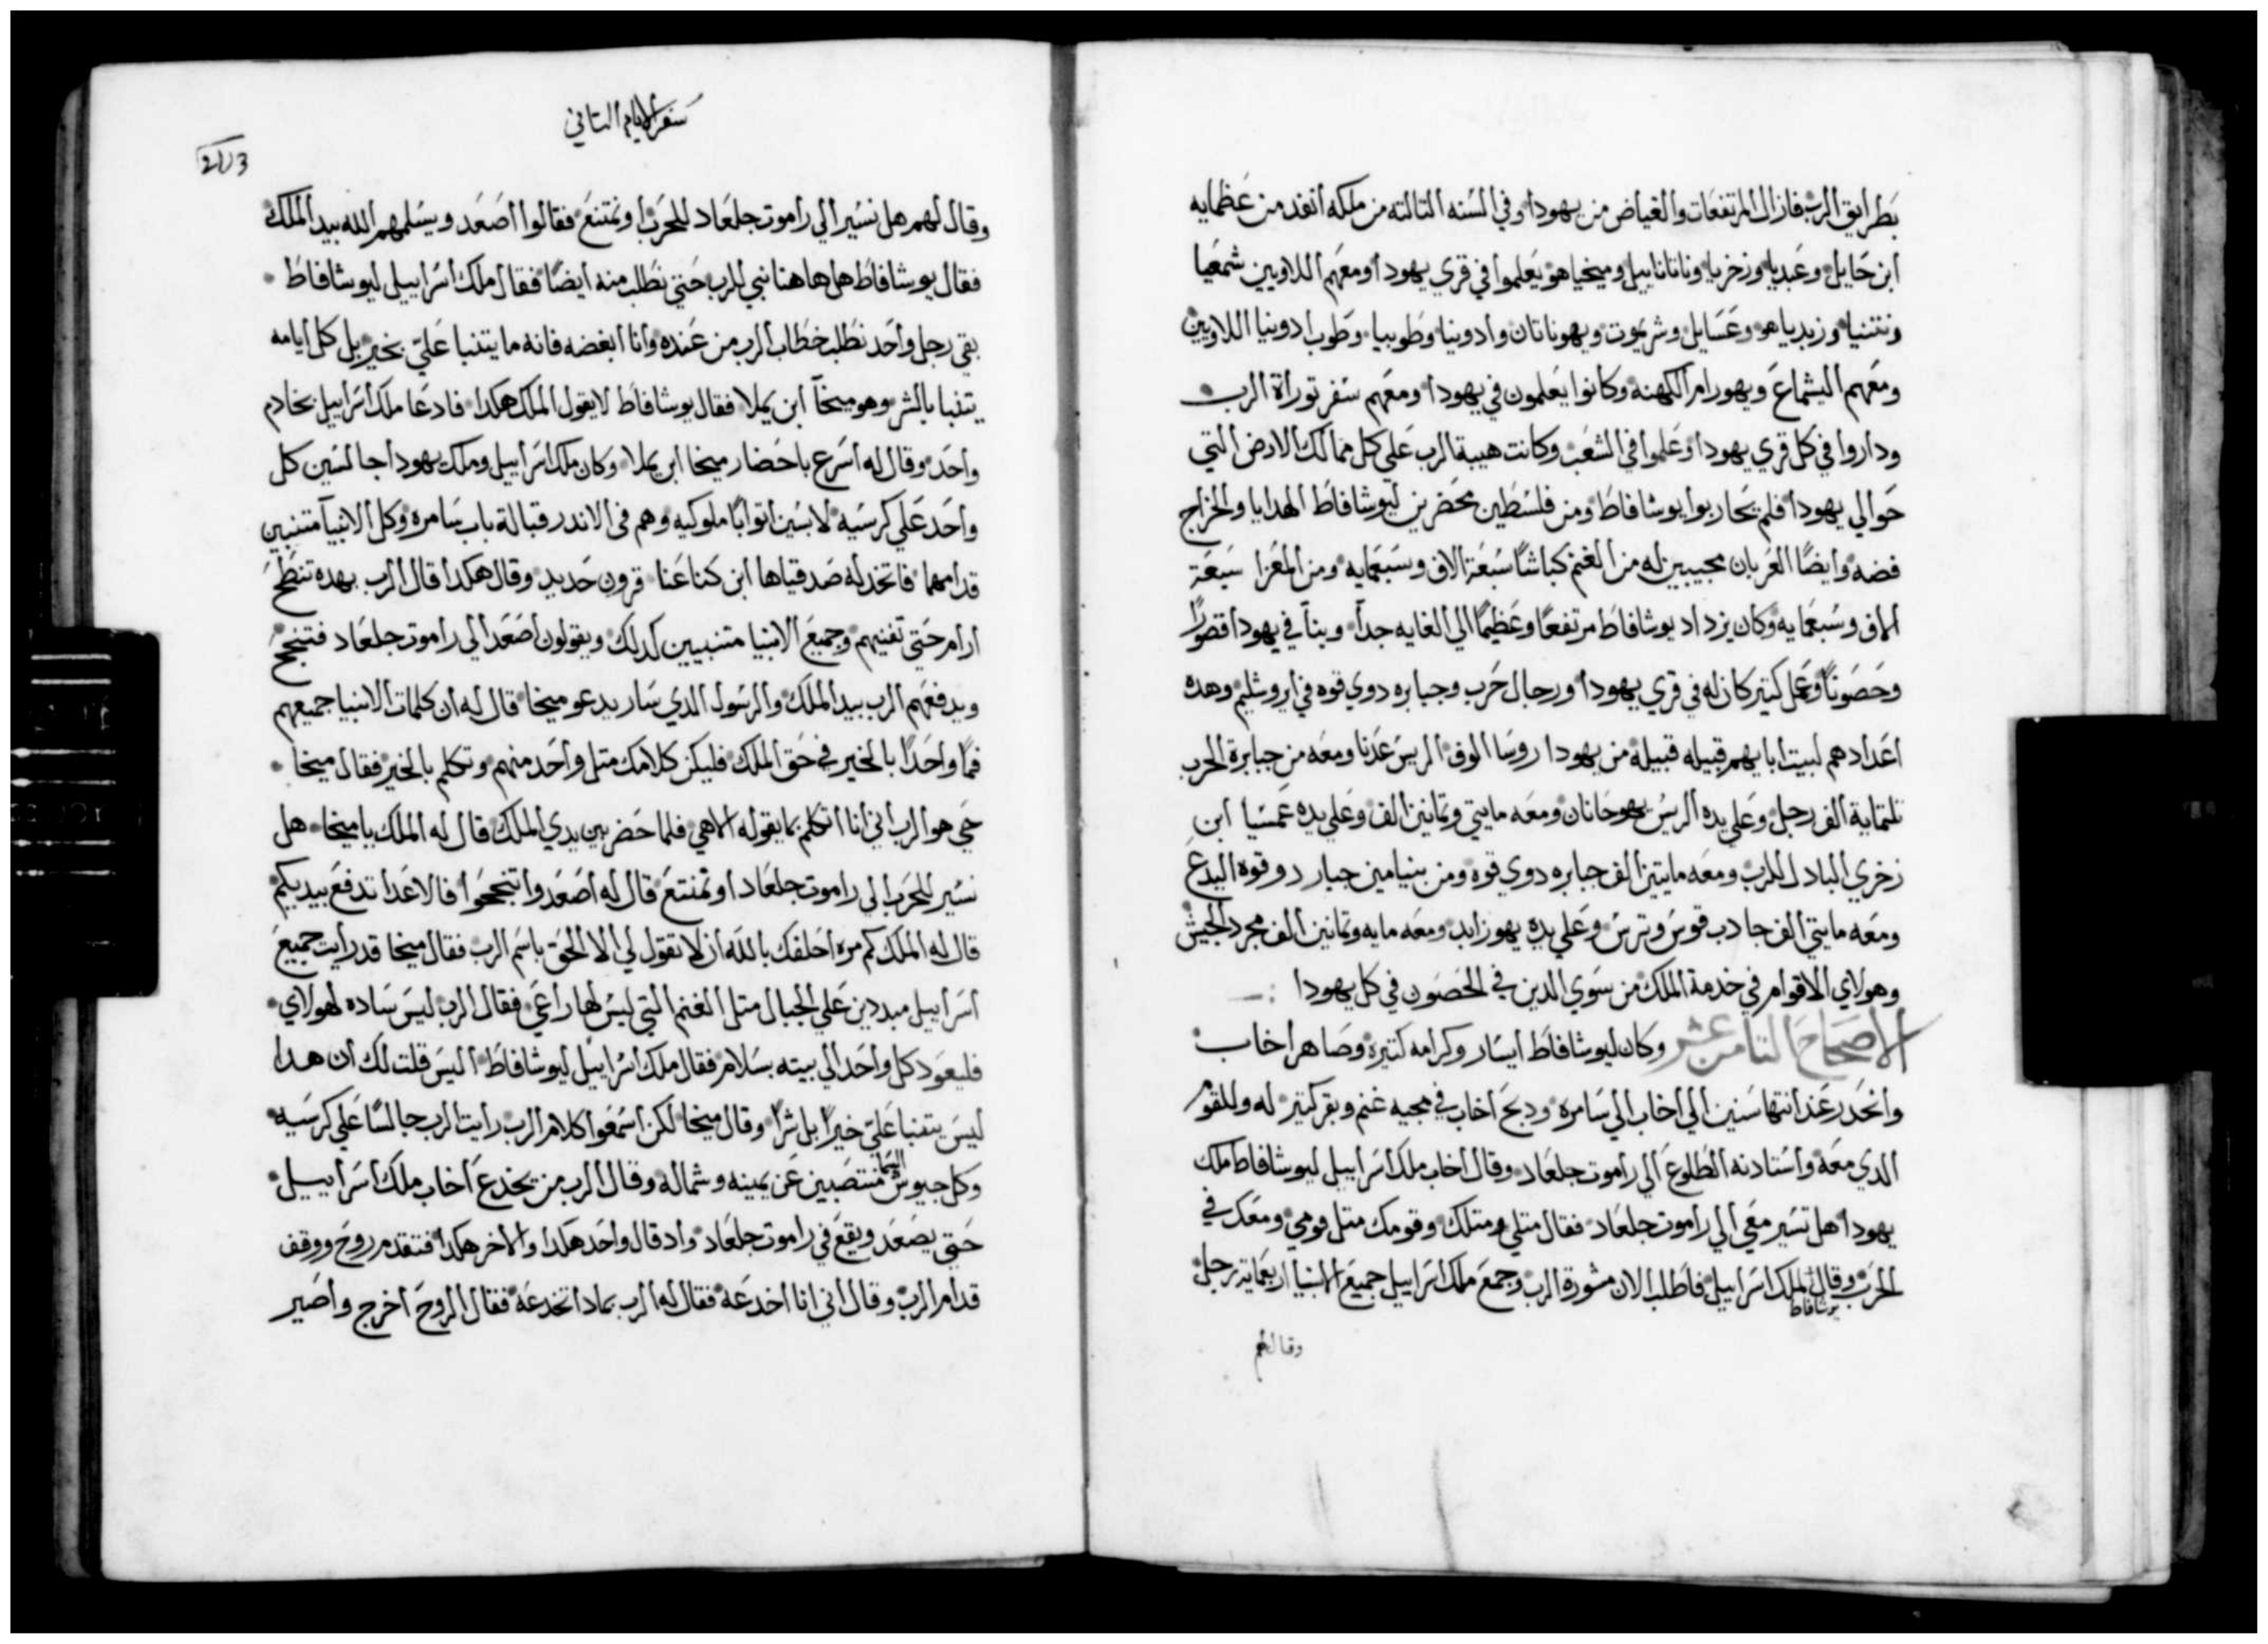 بطرايق الرب فازال المرتفعات والغياض من يهودا وفي السنه التالته من ملكه انفد من عظمايه
ابن حايل وعبديا وزخريا وناتاناييل وميخياهو يعلموا في قري يهودا ومعهم اللاويين شمعيا
ونتنيا وزبدياهو وعسايل وشريموت ويهوناتان وادونيا وطوبيا وطوب ادونيا اللاويين
ومعهم اليشماع ويهورام الكهنه وكانوا يعلمون في يهودا ومعهم سفر توراة الرب
وداروا في كل قري يهودا وعلموا في الشعب وكانت هيبة الرب علي كل ممالك الارض التي
حوالي يهودا فلم يحاربوا يوشافاط ومن فلسطين محضرين ليوشافاط الهدايا والخراج
فضه وايضا العربان مجيبين له من الغنم كباشا سبعة الاف وسبعمايه ومن المعزا سبعة
الاف وسبعمايه وكان يزداد يوشافاط مرتفعا وعظيما الي الغايه جدا وبنا في يهودا قصورا
وحصونا وعمل كتير كان له في قري يهودا ورجال حرب وجبابره دوي قوه في ايروشليم وهده
اعدادهم لبيت ابايهم قبيله قبيلة من يهودا روسا الوف الريس عدنا ومعه من جبابرة الحرب
تلتماية الف رجل وعلي يده الريس يهوحانان ومعه مايتي وتمانين الف وعلي يده عمسيا ابن
زخري البادل للرب ومعه مايتين الف جبابره دوي قوه ومن بنيامين جبار دو قوه اليدع
ومعه مايتي الف جادب قوس وترس وعلي يده يهوزابد ومعه مايه وتمانين الف مجرد الجيش
وهولاي الاقوام في خدمة الملك من سوي الدين في الحصون في كل يهودا
الاصحاح التامن عشر وكان ليوشافاط ايسار وكرامه كتيرة وصاهر اخاب
وانحدر عند انتها سنين الي اخاب الي سامره ودبح اخاب في مجيه غنم وبقر كتير له وللقوم
الدي معه واستادنه الطلوع الي راموت جلعاد وقال اخاب ملك اسراييل ليوشافاط ملك
يهودا هل تسير معي الي راموت جلعاد فقال متلي ومتلك وقومك متل قومي ومعك في
الحرب وقال يوشافاط لملك اسراييل فاطلب الان مشورة الرب وجمع ملك اسراييل جميع الانبيا اربعماية رجل
وقال لهم
سفر الايام التاني
213
وقال لهم هل نسير الي راموت جلعاد للحرب او نمتنع فقالوا اصعد ويسلمهم الله بيد الملك
فقال يوشافاط هل هاهنا نبي للرب حتي نطلب منه ايضا فقال ملك اسراييل ليوشافاط
بقي رجل واحد نطلب خطاب الرب من عنده وانا ابغضه فانه ما يتنبا علي بخير بل كل ايامه
يتنبا بالشر وهو ميخا ابن يملا فقال يوشافاط لا يقول الملك هكدا فادعا ملك اسراييل بخادم
واحد وقال له اسرع باحضار ميخا ابن يملا وكان ملك اسراييل وملك يهودا جالسين كل
واحد علي كرسيه لابسين اتوابا ملوكيه وهم في الاندر قبالة باب سامره وكل الانبيا متنبيين
قدامهما فاتخد له صدقياها ابن كناعنا قرون حديد وقال هكدا قال الرب بهده تنطح
ارام حتي تفنيهم وجميع الانبيا متنبيين كدلك ويقولون اصعد الي راموت جلعاد فتنجح
ويدفعهم الرب بيد الملك والرسول الدي سار يدعو ميخا قال له ان كلمات الانبيا جميعهم
فما واحدا بالخير في حق الملك فليكن كلامك متل واحد منهم وتكلم بالخير فقال ميخا
حي هو الرب اني انا اتكلم بما يقوله الاهي فلما حضر بين يدي الملك قال له الملك يا ميخا هل
نسير للحرب الي راموت جلعاد او نمتنع قال له اصعدوا تنجحوا فالاعدا تدفع بيديكم
قال له الملك كم مره احلفك بالله ان لا تقول لي الا الحق باسم الرب فقال ميخا قد رايت جميع
اسراييل مبددين علي الجبال متل الغنم التي ليس لها راعي فقال الرب ليس ساده لهولاي
فليعود كل واحد الي بيته بسلام فقال ملك اسراييل ليوشافاط اليس قلت لك ان هدا
ليس يتنبا علي خيرا بل شرا وقال ميخا لكن اسمعوا كلام الرب رايت الرب جالسا علي كرسيه
وكل جيوش السما منتصبين عن يمينه وشماله وقال الرب من يخدع اخاب ملك اسراييل
حتي يصعد ويقع في راموت جلعاد واد قال واحد هكدا والاخر هكدا فتقدم روح ووقف
قدام الرب وقال اني انا اخدعه فقال له الرب بمادا تخدعه فقال الروح اخرج واصير